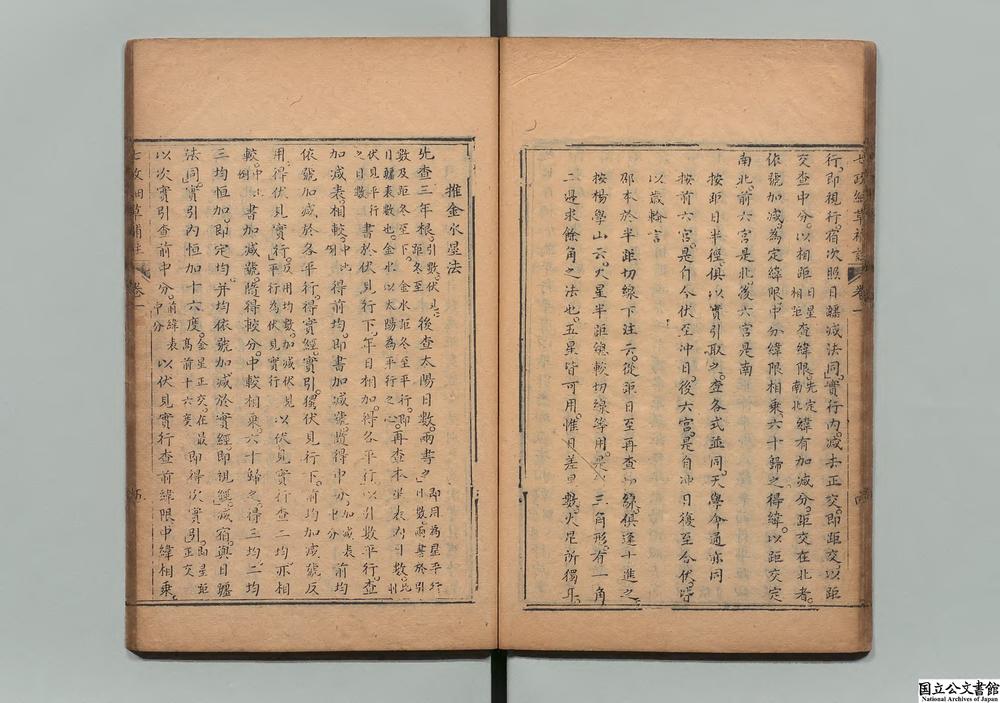 七政細草補註 卷一
行。即視行。宿次照日躔減法。同實行內減去正交。即距交。以距
交查中分。以相距日星相距查緯限。先定南北緯有加減分。距交在北者。
依號加減。為定緯限。中分緯限相乘。六十歸之得緯。以距交定
南北。前六宮是北。後六宮是南
按距日半徑。俱以實引取之。查各式並同。天學會通亦同
按前六宮。是自合伏至沖日。後六宮。是自沖日後至合伏。
以歲輪言
卭本於半距切線下注云。從 日至再查 線。俱逢十進之
按楊學山云。火星半距總較切線等用。是 三角形。有一角
二邊求餘角之法也。五星皆可用。惟日差 數。火星所獨耳。
推金水星法
先查三年根。引數。伏見。距冬至。後查太陽日數。兩書之。即用為星平行日數。兩書於引
數及距冬至下。金水距冬至平行。即日躔表數也。金水以太陽為平行之心。再查本星表內日數。
伏見平行之日數書於伏見行下。年日相加。得各平行。以引數平行。查
加減表。相較。得前均。即書加減號。隨得中分。加減表中分前均
依號加減於各平行。得實經。實引。獨伏見行下。前均加減號反
用。得伏見實行。反用均數。加減伏見平行為伏見實行以伏見實行查二均。亦相
較。書加減號。隨得較分。中較相乘。六十歸之。得三均。二均
三均恒加。即定均。并均依號加減於實經。即視經。減宿與日躔
法同。實引內恒加十六度。金星正交。在最高前十六度即得次實引。即星距正交
以次實引查前中分。前緯表中分以伏見實行查前緯限。中緯相乘。
七政細草補註 卷一
国立公文書館
National Archives of Japan